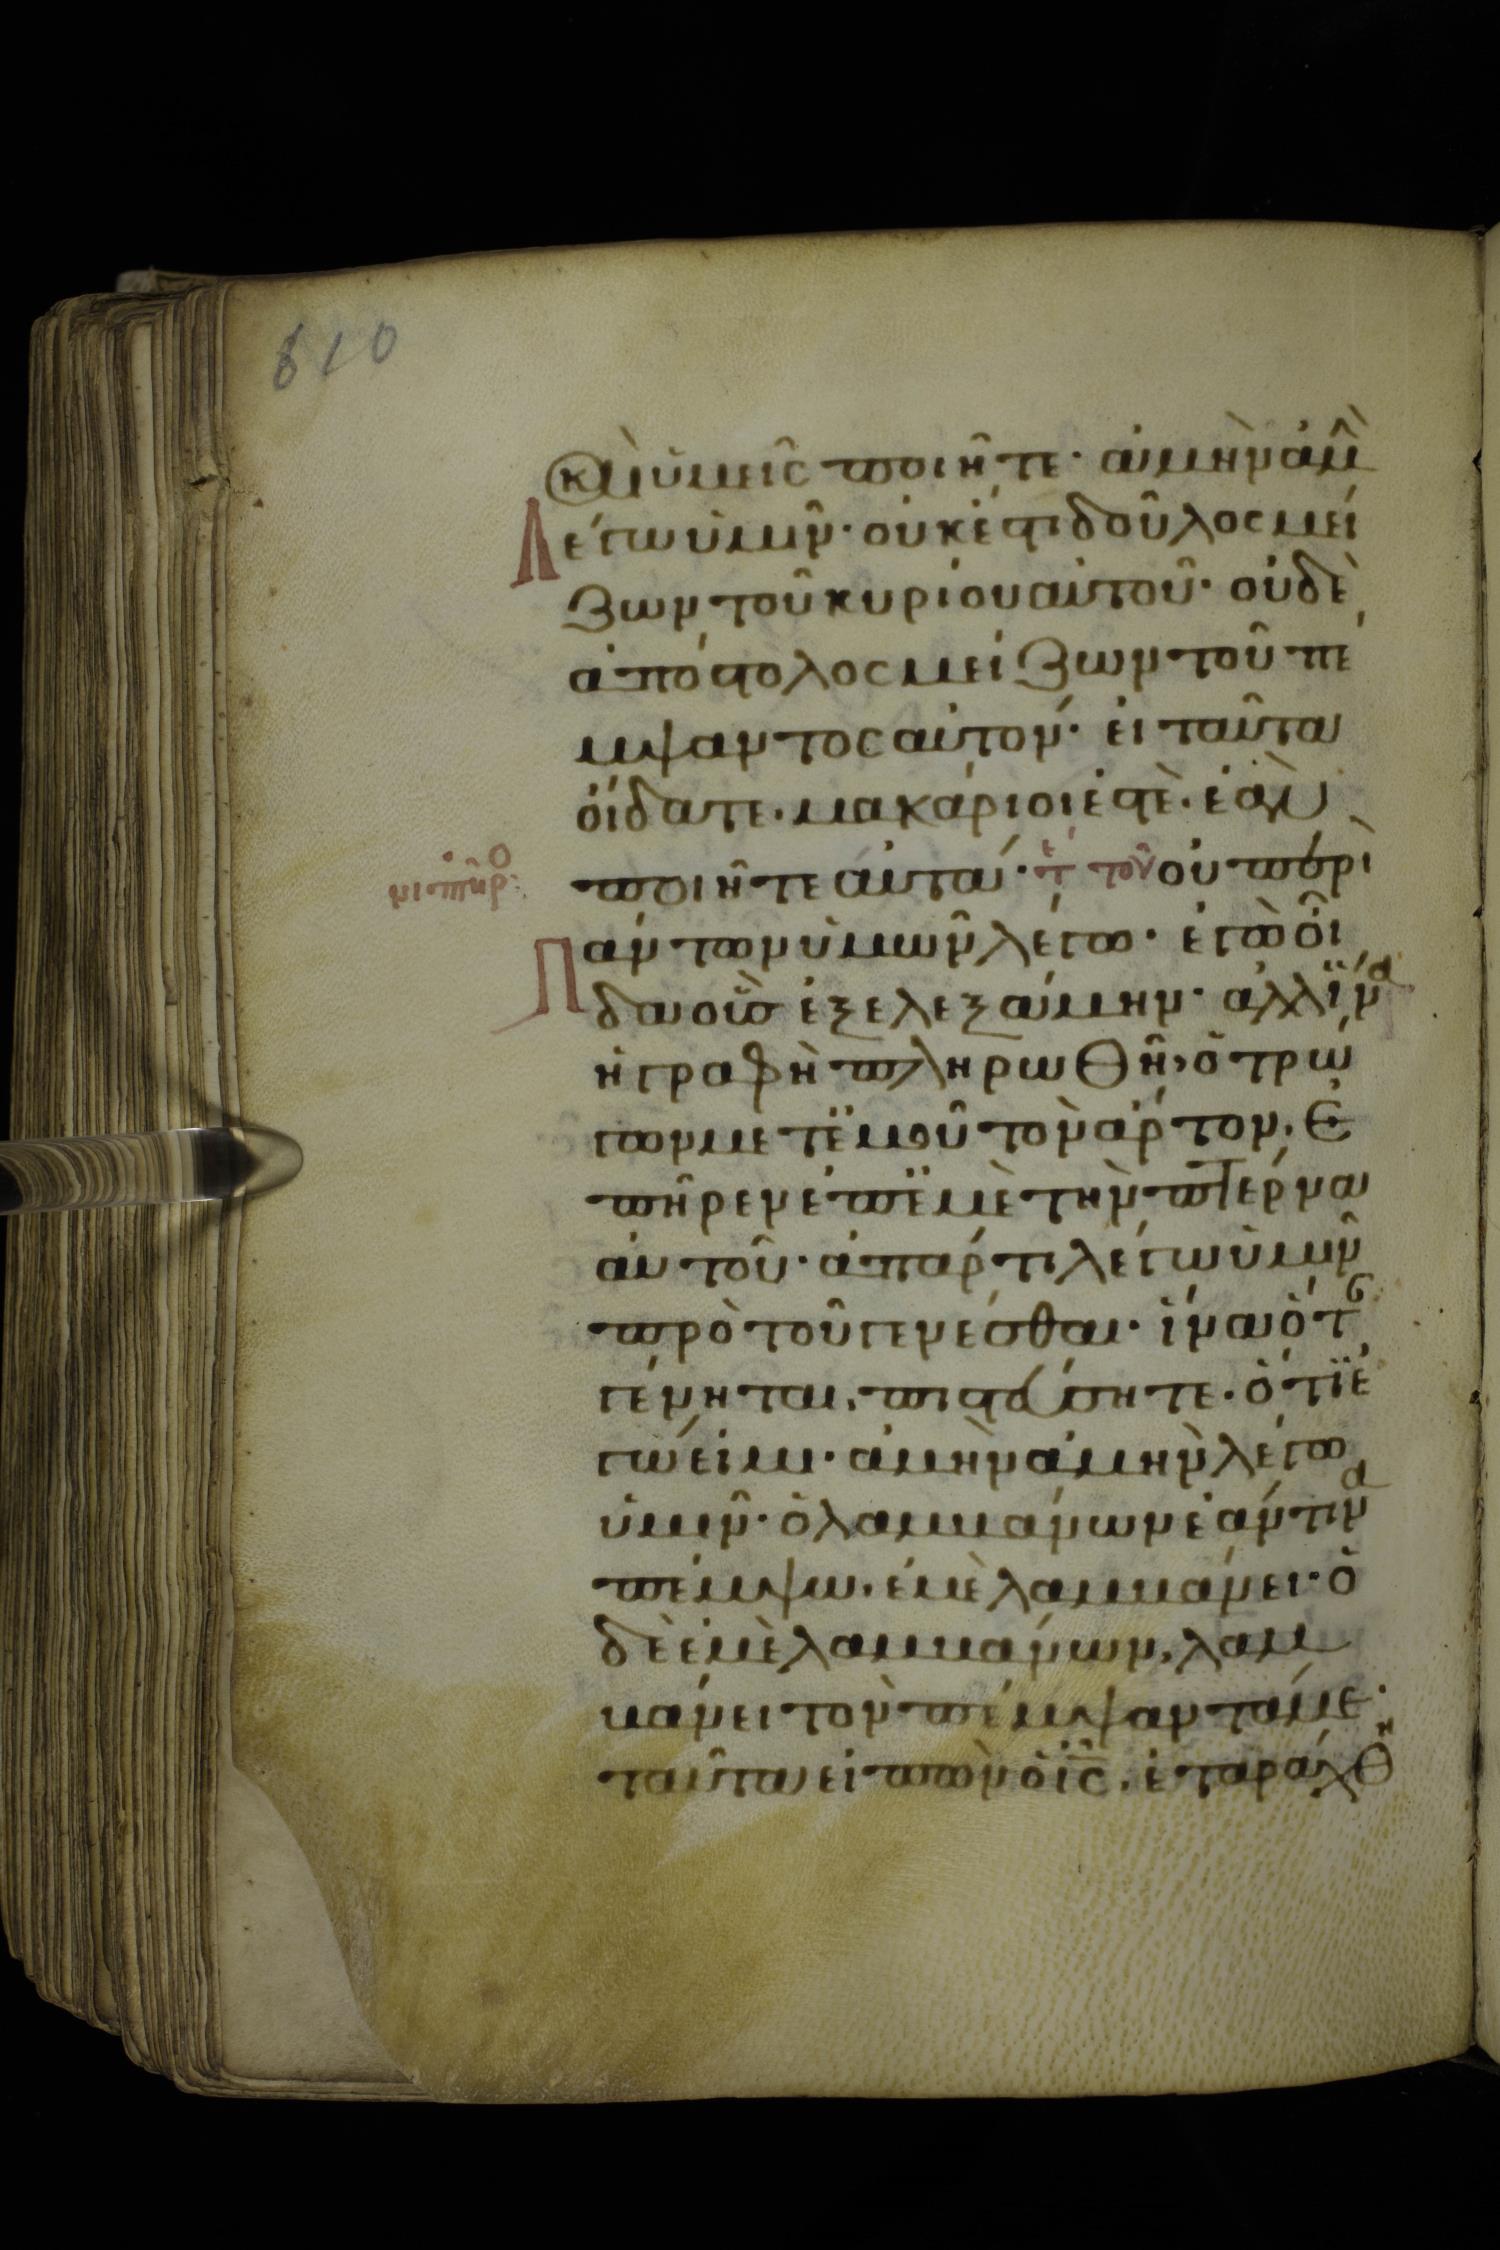 610
κ(αὶ) ὑμεῖς ποιῆτε· ἀμὴν ἀμὴ
Λέγω ὑμῖν· οὐκ ἔστι δοῦλος μεί
ζων τοῦ κυρίου αὐτοῦ· οὐδὲ
ἀπόστολος μείζων τοῦ πέ
μψαντος αὐτόν· εἰ ταῦτα
οἴδατε· μακάριοι ἐστὲ· ἐὰν
ποιῆτε αὐτά· οὐ περὶ
Πάντων ὑμῶν λέγω· ἐγὼ οἶ
δα οὓς ἐξελεξάμην· ἀλλ ἵνα
ἡ γραφὴ πληρωθῆ, ὁ τρώ
γων μετ ἐμοῦ τὸν ἄρτον· ἐ
πῆρεν ἐπ ἐμὲ τὴν πτέρνα
αὐτοῦ· ἀπάρτι λέγω ὑμῖν
πρὸ τοῦ γενέσθαι· ἵνα ὅτ
γένηται, πιστεύσητε· ὅτι ἐ
γώ εἰμι· ἀμὴν ἀμὴν λέγω
ὑμῖν· ὁ λαμκάνων ἐάν τινα
πέμψω, ἐμὲ λαμκάνει· ὁ
δὲ ἐμὲ λαμκάνων, λαμ
κάνει τὸν πέμψαντά με·
ταῦτα εἰπὼν ὁ ις, ἐταράχθη